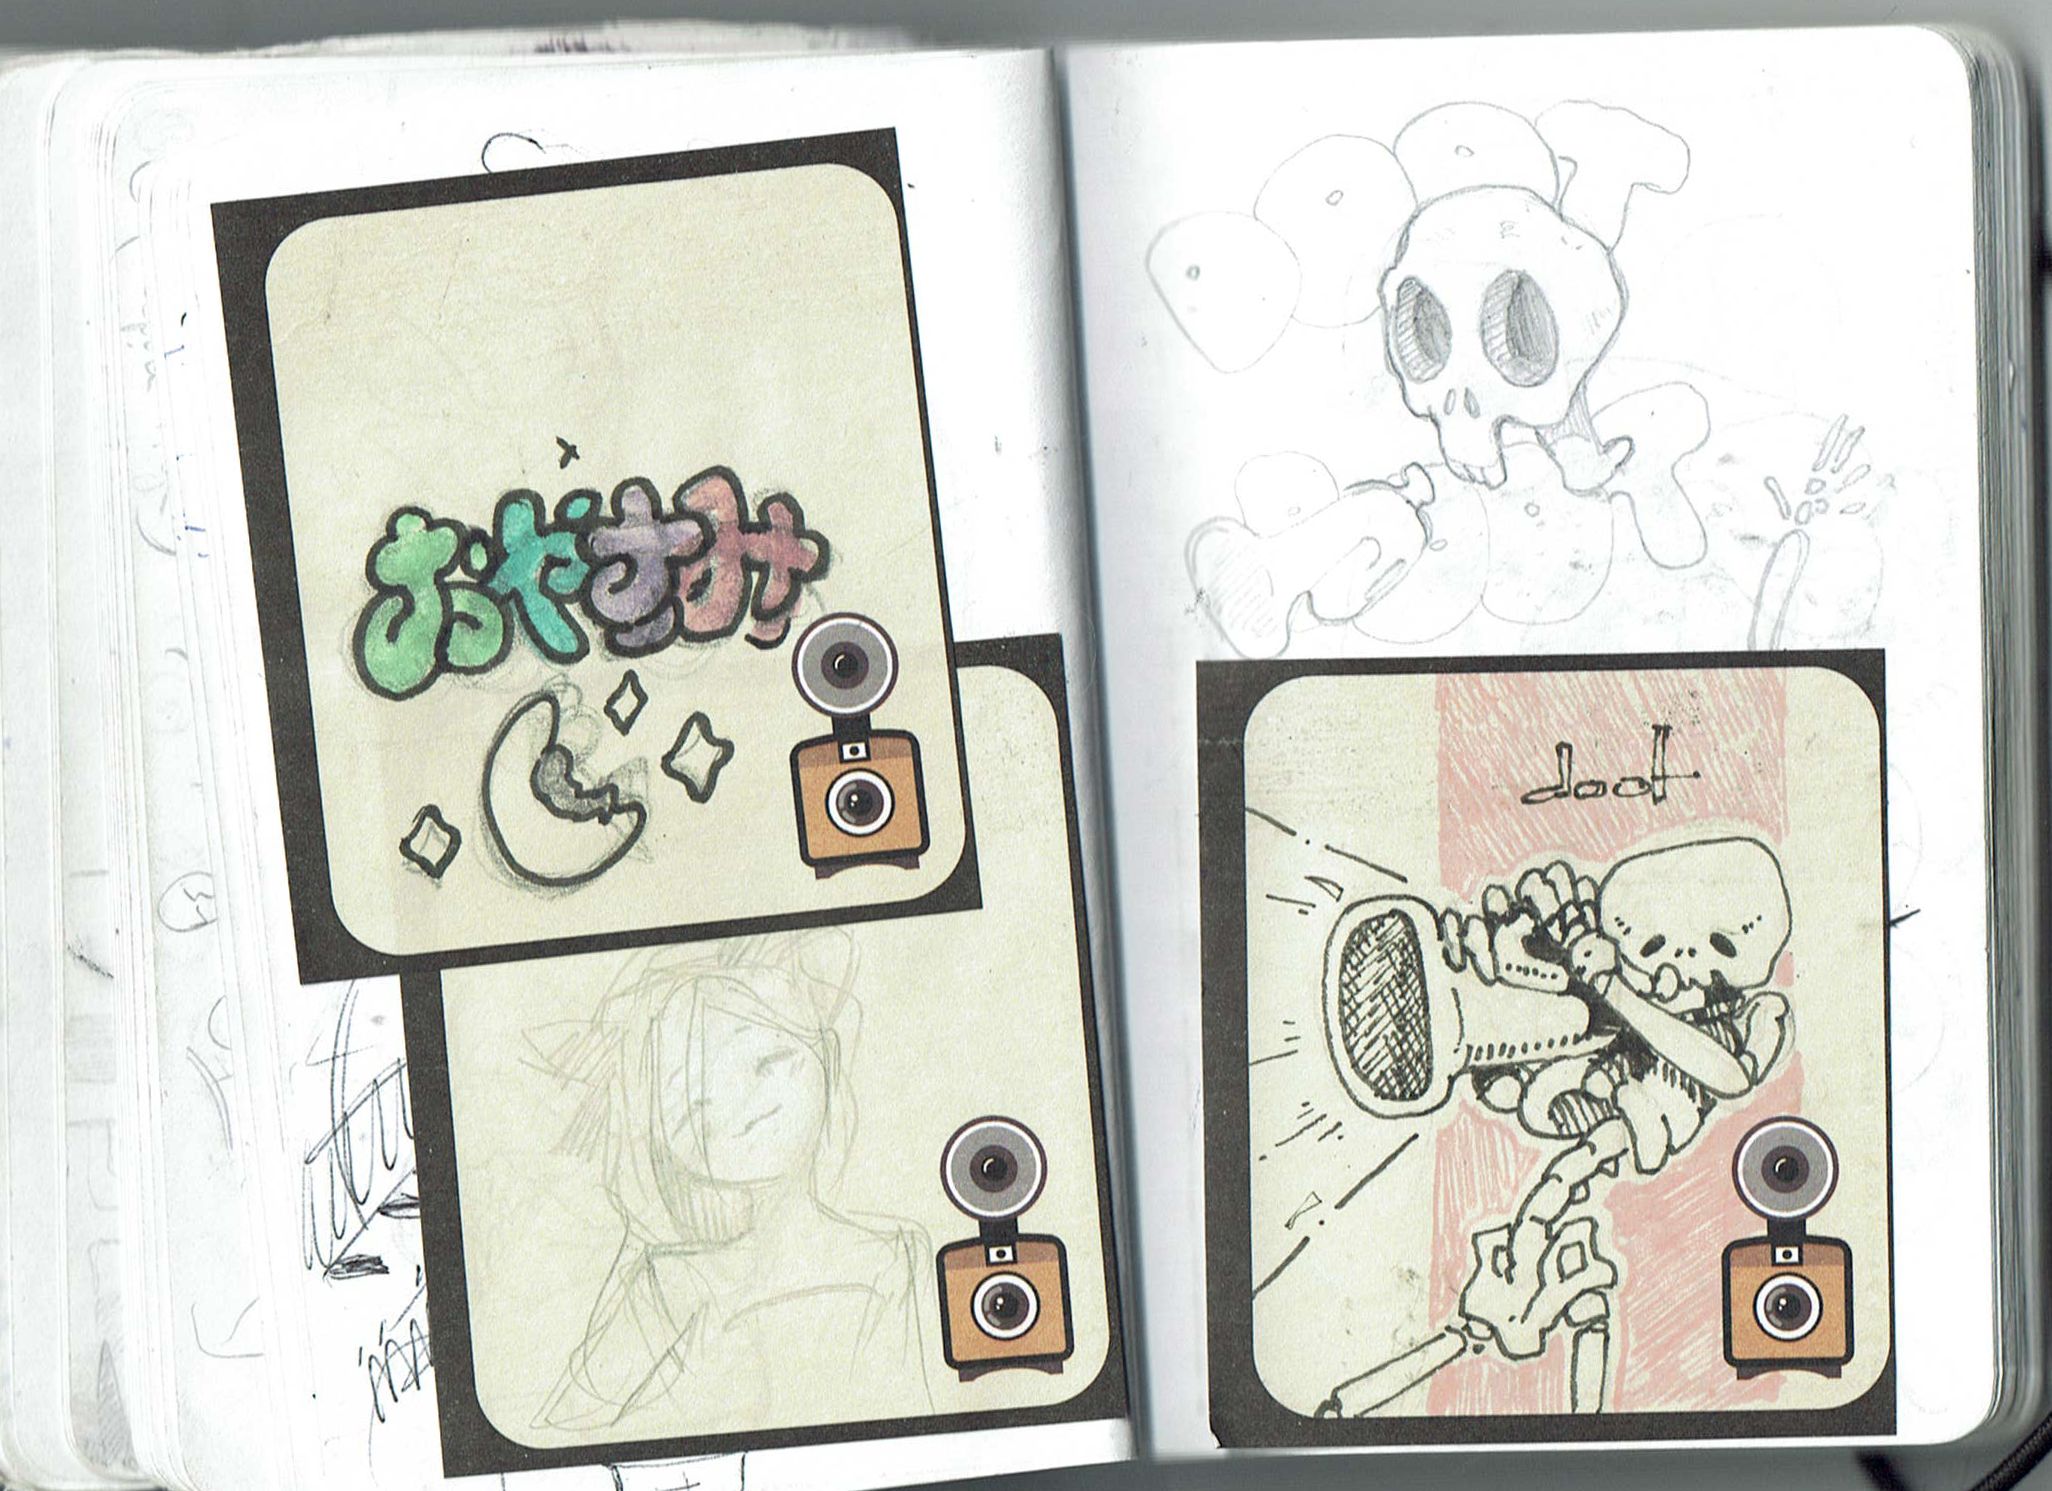 おやすみ
doot